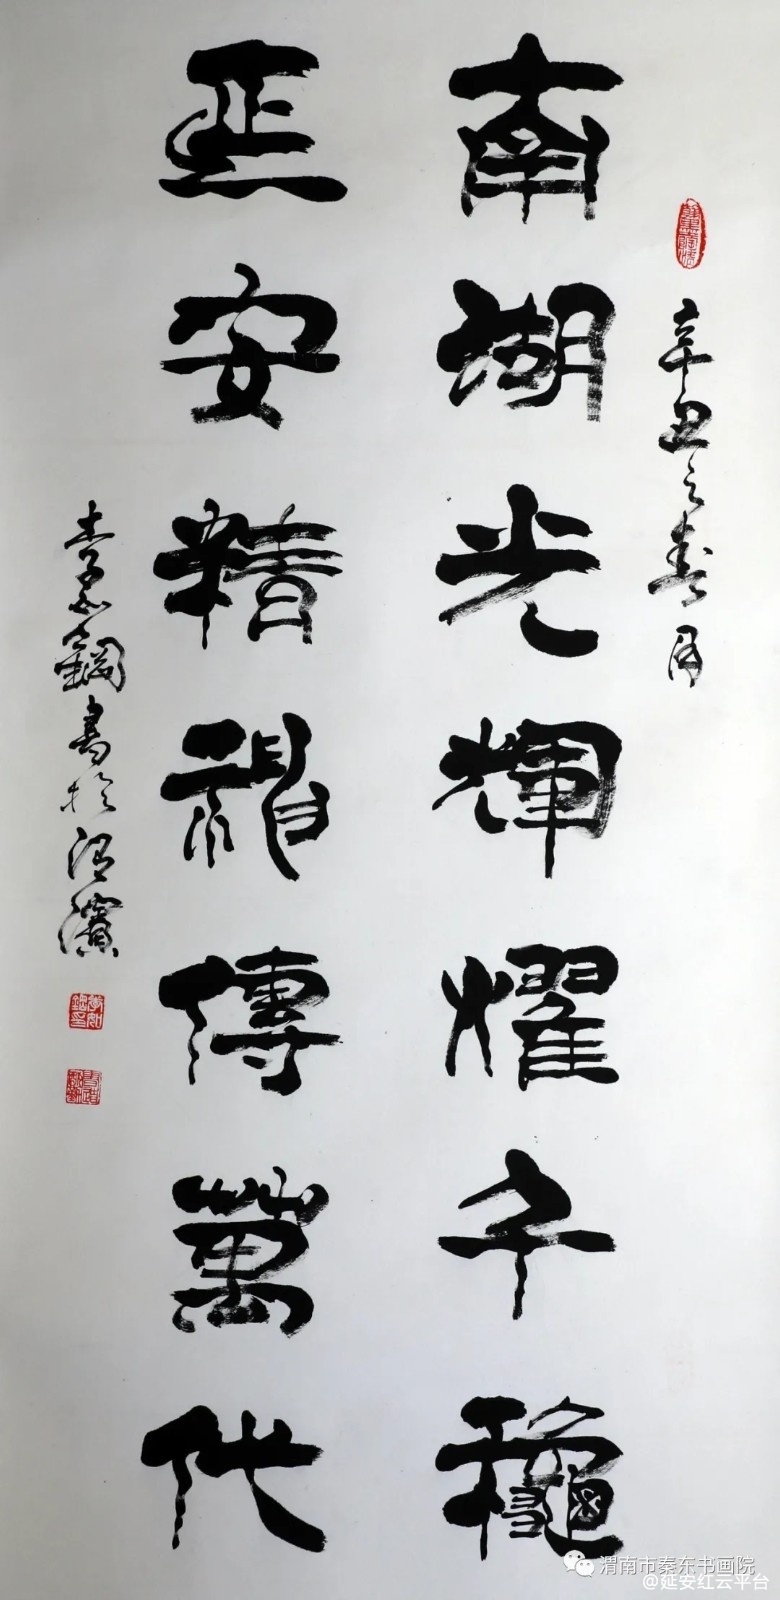 辛丑之春月
南湖光輝耀千龝
延安精神傳萬代
李如鋼書於渭濱
渭南市秦东书画院
@延安红云平台